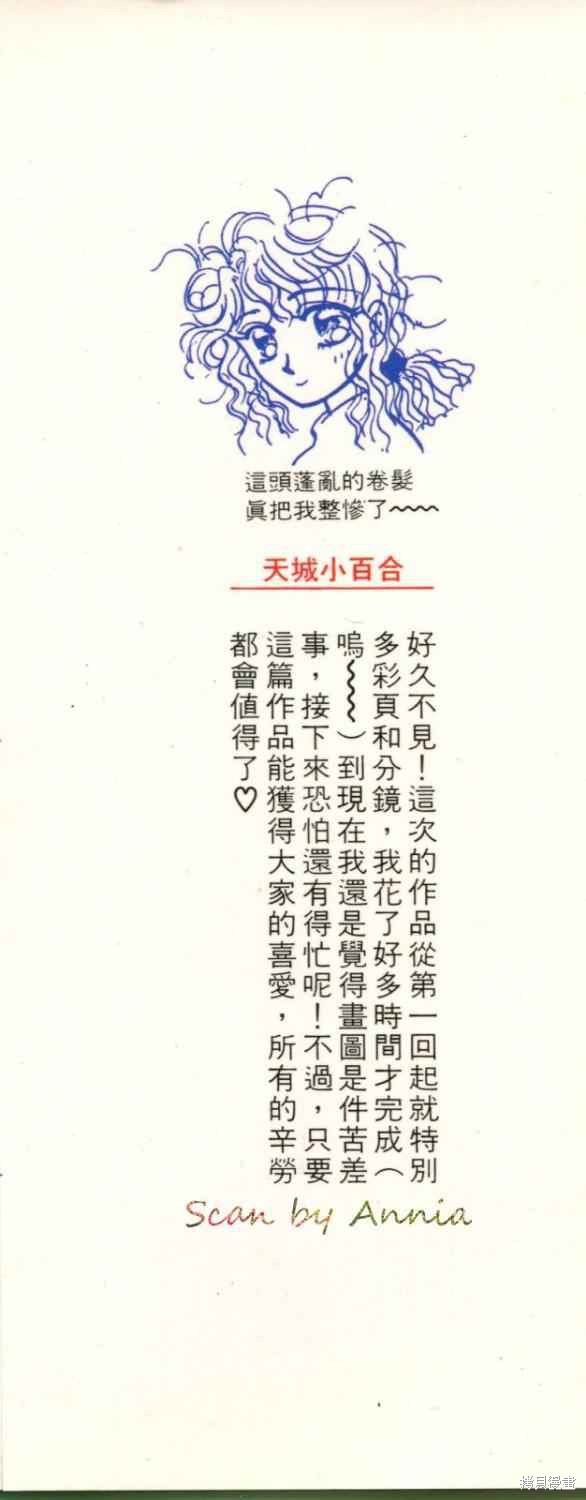 這頭蓬亂的卷髮
眞把我整慘了~~~
天城小百合
好久不見！這次的作品從第一回起就特別
多彩頁和分鏡，我花了好多時間才完成（
嗚~~~）到現在我還是覺得畫圖是件苦差
事，接下來恐怕還有得忙呢！不過，只要
這篇作品能獲得大家的喜愛，所有的辛勞
都會值得了♡
Scan by Annia
拷貝漫畫